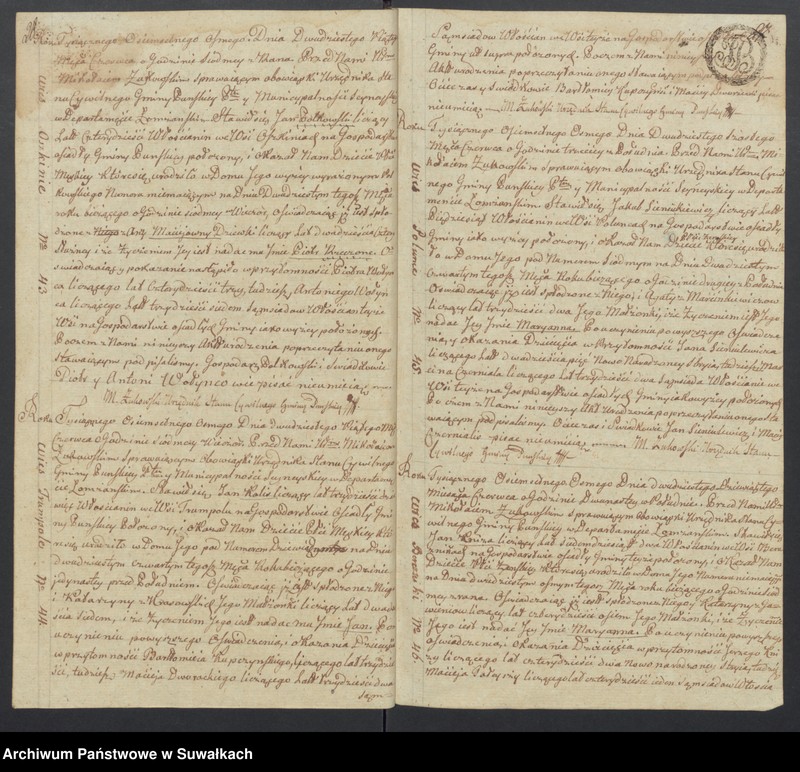 Tysiącznego Ośmsetnego Osmego. Dnia Dwudziestego Piątego
Mca Czerwca o Godzinie Siodmey z Rana. Przed Nami
Mikołaiem Żukowskim sprawuiącym obowiązki Urzędnika Sta
nu Cywilnego Gminy Puńskiey Ptu y Municypalności Seynskiey
w Departamęcie Łomżańskim. Stawił się Jan Bołkowski liczący
Latt Czterdzieści Włoscianin we Wsi Oszkiniach na Gospodar
osiadły Gminy Puńskiey położony, i okazał Nam Dziecie Płci
Męzkiey które się urodziło w Domu Jego wyzey wyrażonym
Numera niemaiącym na Dniu Dwudziestym tegoż Mca
roku bieżącego o Godzinie siodmey Wieczor, oświadczaiąc iż jest spło
dzone z Niego y Maryanny liczącey lat Dwadzieścia
i że Życzeniem Jey iest nadać mu Imie Piotr
świadczaiąc y pokazanie nastąpiło w przytomności Piotra
liczącego lat Czterdzieści trzy, tudzież Antoniego Wołyń
ca liczącego Latt trzydzieści siedem sąmsiadow Włoscian teyże
Wsi na Gospodarstwie osiadłych Gminy iako wyzey położonych
Poczem z Nami ninieyszy Akt Urodzenia po przeczytaniu onego
stawaiącym podpisaliśmy. Gospodarz Bołkowski. Swiadkowie
Piotr y Antoni Wołynco wie pisać nieumieią
M. Żukowski Urzędnik Stanu Cywilnego Gminy Puńskiey
Akt Oszkinie No 43
Roku Tysiącznego Ośmsetnego Osmego Dnia dwudziestego Piątego M
Czerwca o Godzinie siodmey Wieczor. Przed Nami Mikołaiem
Żukowskim Sprawuiącym obowiązki Urzędnika Stanu Cywilnego
Gminy Puńskiey Ptu y Municypalności Seynskiey w Departamę
cie Łomżańskim. Stawił się Jan Kalis liczący lat trzydzieści dzie
więć Włoscianin we Wsi Trumpolu na Gospodarstwie Osiadły Gmi
ny Puńskiey Położony, i okazał Nam Dziecie Płci Męzkiey któ
re się urodziło w Domu Jego pod Numerem na Dniu
dwudziestym czwartym tegoż Mca Roku bieżącego o Godzinie
iedynastey przed Południem. Oświadczaiąc iż jest spłodzone z Nie
i Katarzyny z Jego Małżonki liczącey Lat dwa
dzieścia siedem, i że Życzeniem Jego iest nadać mu Imie Jan. Po
uczynieniu powyższego Oświadczenia, i okazania Dziecięcia
w przytomności Bartłomieia Kupczyńskiego liczącego lat trzydzie
ści, tudzież Macieia Dworackiego liczącego Latt trzydzieści dwa
sąm
Akt Trumpole No 44
Sąmsiadow Włoscian we Wsi teyże na Gospodarstwie
Gminy ut supra położonych. Poczem z Nami ninieyszy
Akt urodzenia po przeczytaniu onego stawaiącym
Ociec zaś y Swiadkowie Bartłomiey Kupczyński y Maciey Dworacki pisać
nieumieią M. Żukowski Urzędnik Stanu Cywilnego Gminy Puńskiey
Roku Tysiącznego Ośmsetnego Osmego Dnia dwudziestego szostego
Mca Czerwca o Godzinie trzeciey z Południa. Przed Nami Mi
kołaiem Żukowskim sprawuiącym obowiązki Urzędnika Stanu Cywil
nego Gminy Puńskiey Ptu y Municypalności Seynskiey w Departa
mencie Łomżańskim. Stawił się Jakub Sieniekiewicz liczący Latt
Pięćdziesiąt Włoscianin we Wsi Poluncach na Gospodarstwie osiadły
Gminy iako wyzey położony, i okazał Nam Dziecie Płci Zenskiey
w Domu Jego pod Numerem siodmym na Dniu Dwudziestym
Czwartym tegoż Mca Roku bieżącego o Godzinie drugiey z Południa
Oświadczaiąc iż jest spłodzone z Niego, i Agaty z Marcinkiewiczow
liczącey lat trzydzieści dwa Jego Małżonki, iż Życzeniem iest Jego
nadać Jey Imie Maryanna. Po uczynieniu powyższego Oświadcze
nia y okazania Dziecięcia w Przytomności Jana Sieniulewicza
liczącego Latt dwadzieścia pięć Nowo Narodzoney Stryia, tudzież Ma
cia Czerniala liczącego Lat trzydzieści dwa Sąmsiada Włoscianie we
Wsi teyże na Gospodarstwie osiadłych Gminy iako wyzey położonych
Poczem z Nami ninieyszy Akt Urodzenia po przeczytaniu onego sta
waiącym podpisaliśmy. Ociec zaś i Swiadkowie Jan Sieniulewicz y Maciey
Czernialis pisać nieumieią M. Żukowski Urzędnik Stanu
Cywilnego Gminy Puńskiey
Akt Polunce No 45
Roku Tysiącznego Ośmsetnego Osmego Dnia dwudziestego Dziewiątego
Miesiąca Czerwca o Godzinie Dwanastey w Południe. Przed Nami
Mikołaiem Żukowskim sprawuiącym obowiązki Urzędnika Stanu Cy
wilnego Gminy Puńskiey w Departamęcie Łomżańskim. Stawił się
Jan liczący Latt siedemdziesiąt Dwa Włoscianin we Wsi
na Gospodarstwie osiadły Gminy teyże położony, i okazał Nam
Dziecie Płci Zenskiey które się urodziło w Domu Jego Numeru niemaiącym
na Dniu dwudziestym osmym tegoż Mca roku bieżącego o Godzinie siod
mey z rana. Oświadczaiąc iż jest spłodzone z Niego y Katarzyny z
liczącey lat czterdzieści osiem Jego Małżonki, i że Życzenie
Jego iest nadać Jey Imie Maryanna. Po uczynieniu powyższego
Oświadczenia, i okazania Dziecięcia w przytomności Jerzego
liczącego lat czterdzieści dwa Nowo narodzoney Stryia, tudzież
Macieia liczącego lat czterdzieści ieden Sąmsiadow Włoscia
No 46
Archiwum Państwowe w Suwałkach